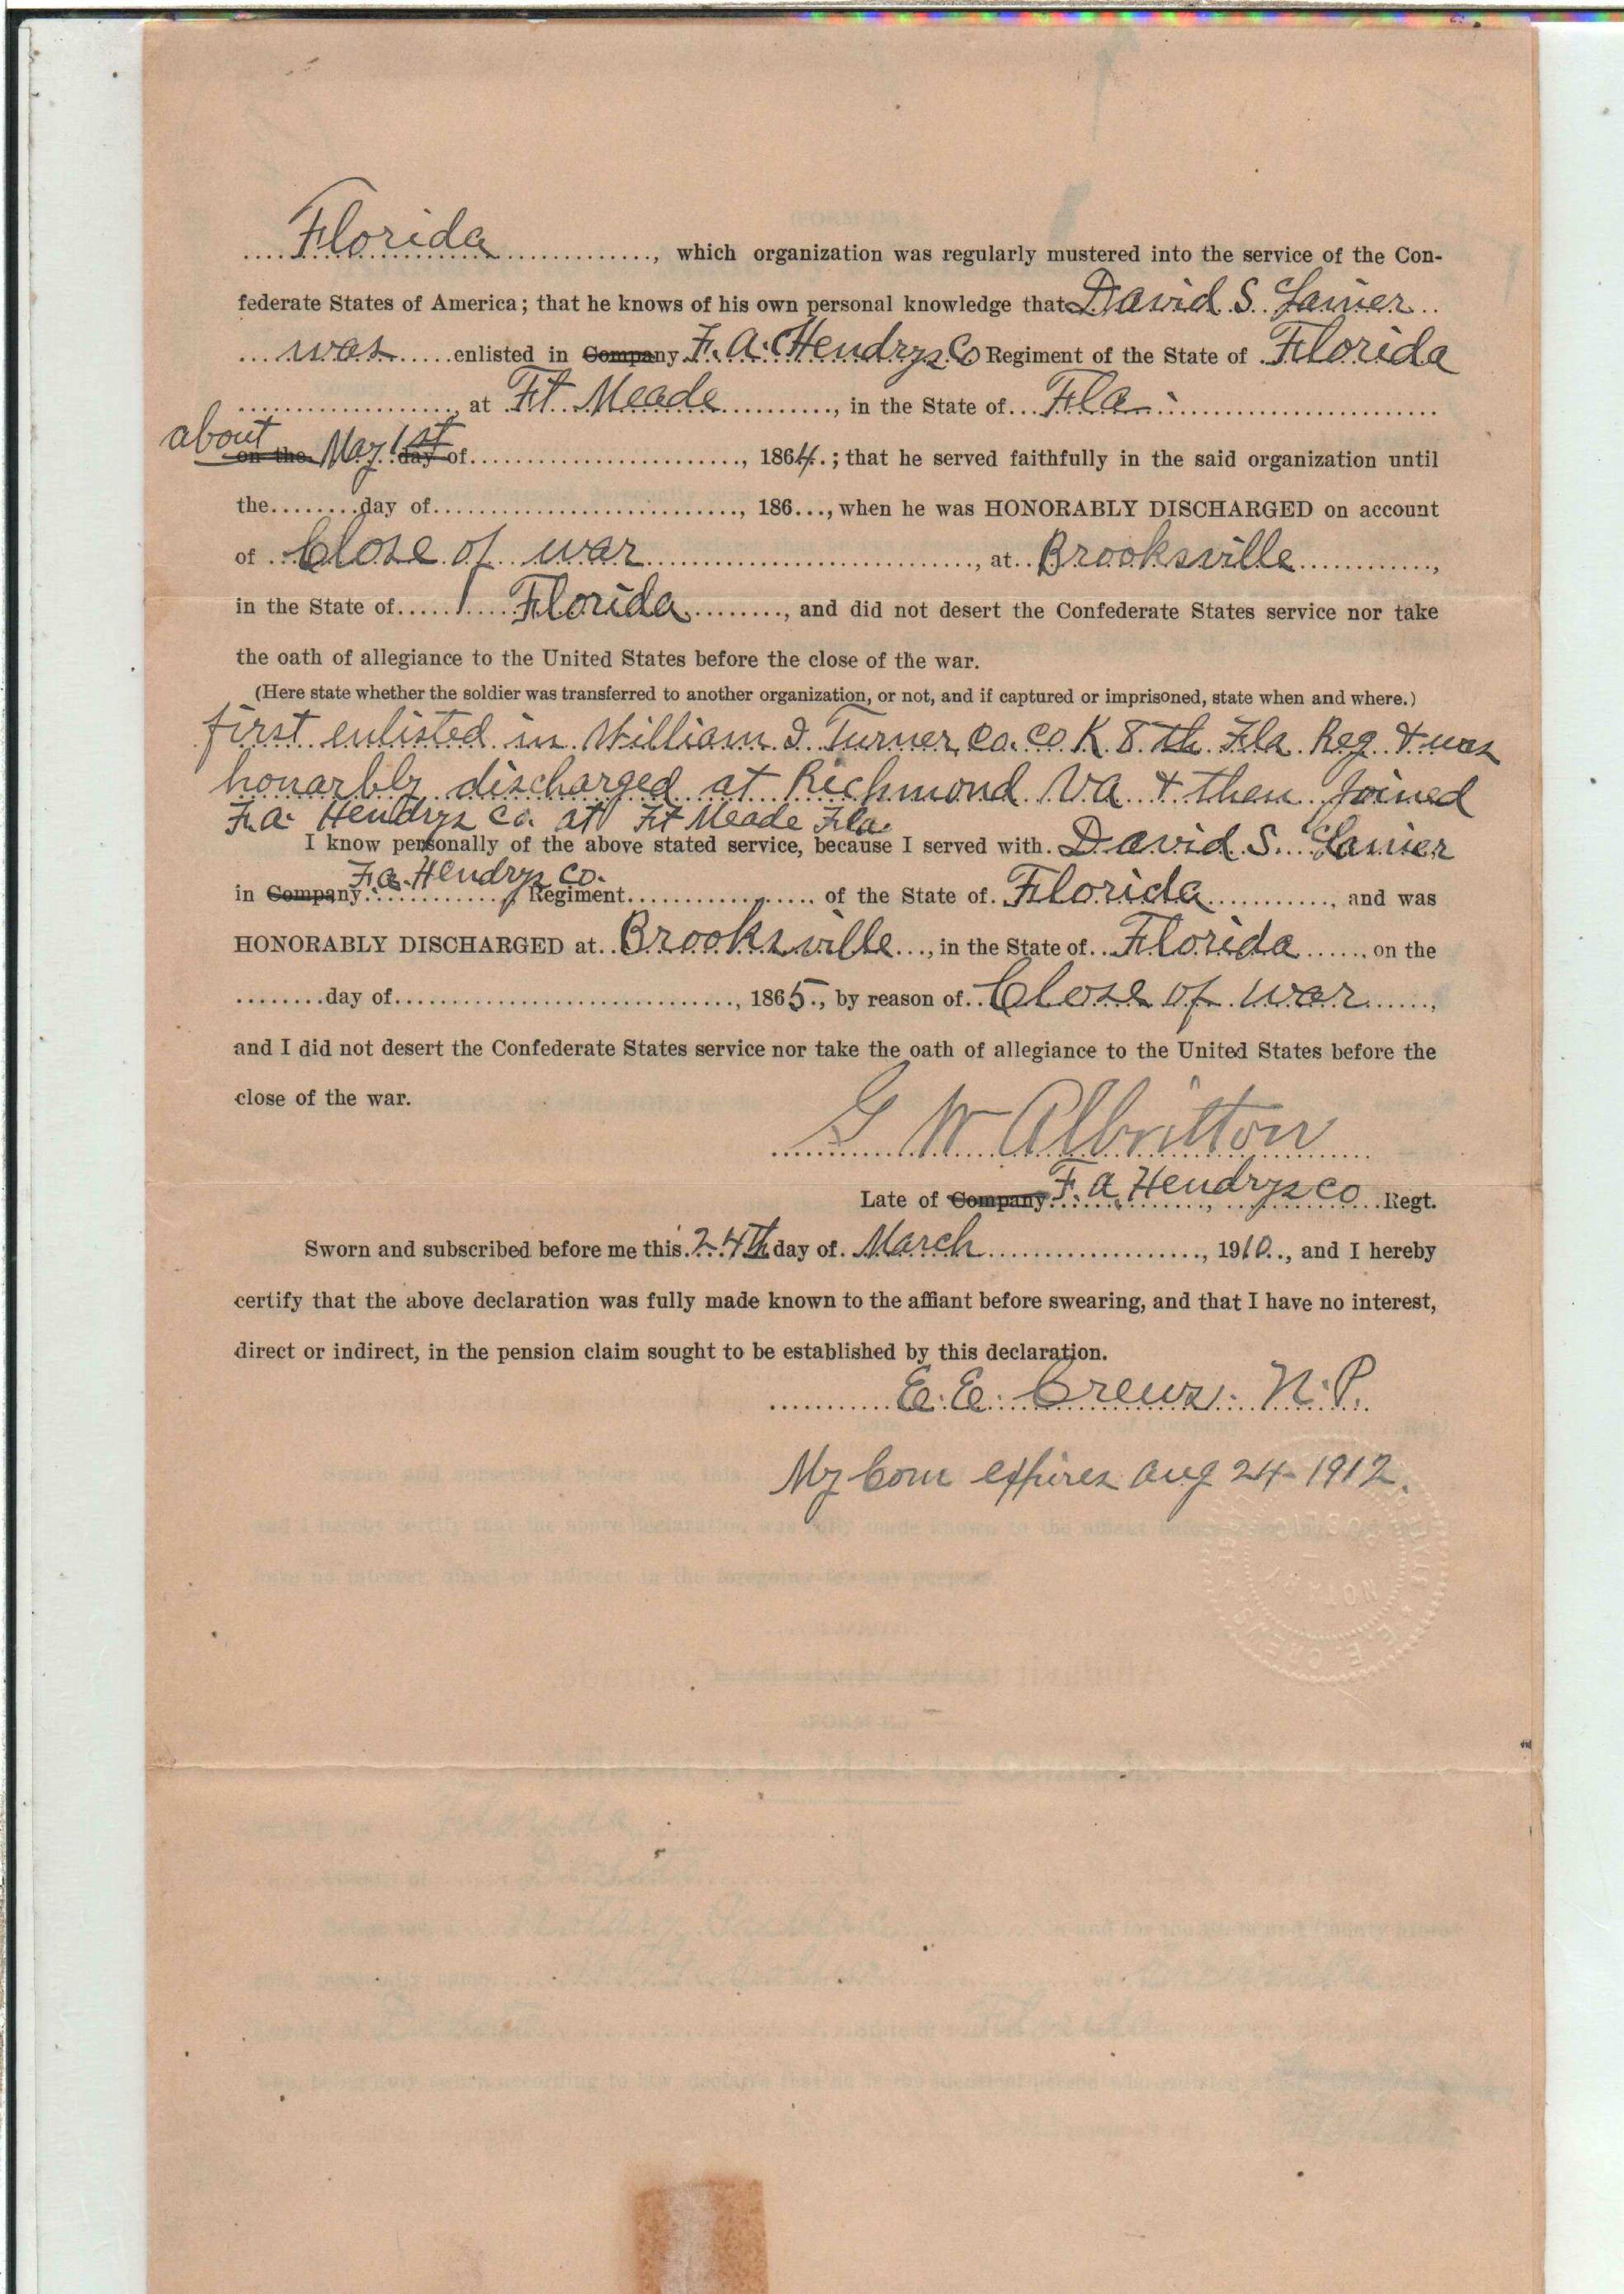 Florida, which organization was regularly mustered into the service of the Con-
federate States of America; that he knows of his own personal knowledge that David S. Lanier
was enlisted in Company F. A. Hendrys Co Regiment of the State of Florida
, at Ft Meade, in the State of Fla.
about on the May 1st day of, 1864.; that he served faithfully in the said organization until
the day of, 186..., when he was HONORABLY DISCHARGED on account
of Close of war, at Brooksville,
in the State of Florida, and did not desert the Confederate States service nor take
the oath of allegiance to the United States before the close of the war.
(Here state whether the soldier was transferred to another organization, or not, and if captured or imprisoned, state when and where.)
first enlisted in William I. Turner Co. Co K 8th Fla Reg & was
honarbly discharged at Richmond Va & then joined
F. a. Hendrys Co. at Ft Meade Fla.
I know personally of the above stated service, because I served with David S. Lanier
in Company F. a. Hendrys Co. Regiment of the State of Florida, and was
HONORABLY DISCHARGED at Brooksville, in the State of Florida on the
day of, 1865., by reason of Close of war,
and I did not desert the Confederate States service nor take the oath of allegiance to the United States before the
close of the war.
G W Albritton
Late of Company F. A. Hendrys Co Regt.
Sworn and subscribed before me this 24th day of March, 1910.., and I hereby
certify that the above declaration was fully made known to the affiant before swearing, and that I have no interest,
direct or indirect, in the pension claim sought to be established by this declaration.
E. E. Crews. N. P.
My Com expires Aug 24-1912.
NOTARY
E. E. CREWS